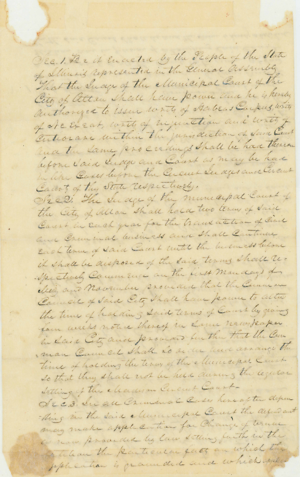 Sec. 1. Be it enacted by the People of the State
of Illinois represented in the General Assembly
That the Judge of the Municipal Court of the
City of Alton Shall have power and he is hereby
Authorized to issue writs of Habeas Corpus, writs
of ne exeat, writs of injunction and writs of
Certiorari within the jurisdiction of said Court
and the Same proceedings Shall be had thereon
before said Judge and Court as may be had
in like Cases before the Circuit Judges and Circuit
Courts of this State respectively
Sec 2. The Judge of the municipal Court of
the City of Alton Shall hold two terms of Said
Court in each year for the transaction of Civil
and Criminal business and Shall Continue
each term of Said Court until the business before
it Shall be disposed of the said terms Shall re
spectively Commence on the first Mondays of
and November provided that the Common
Council of Said City Shall have power to alter
the time of holding Said terms of Court by giving
four weeks notice thereof in Some newspaper
in Said City and provided further that the Com
mon Council Shall So arrange the
time of holding the terms of the Municipal Court
So that they Shall not be held during the regular
Sitting of the Madison Circuit Court
Sec 3. In all Criminal Cases hereafter depen
ding in the Said Municipal Court the defendant
may make application for Change of Venue
in manner provided by law setting forth in the
petition the particular facts on which the
application is grounded and which